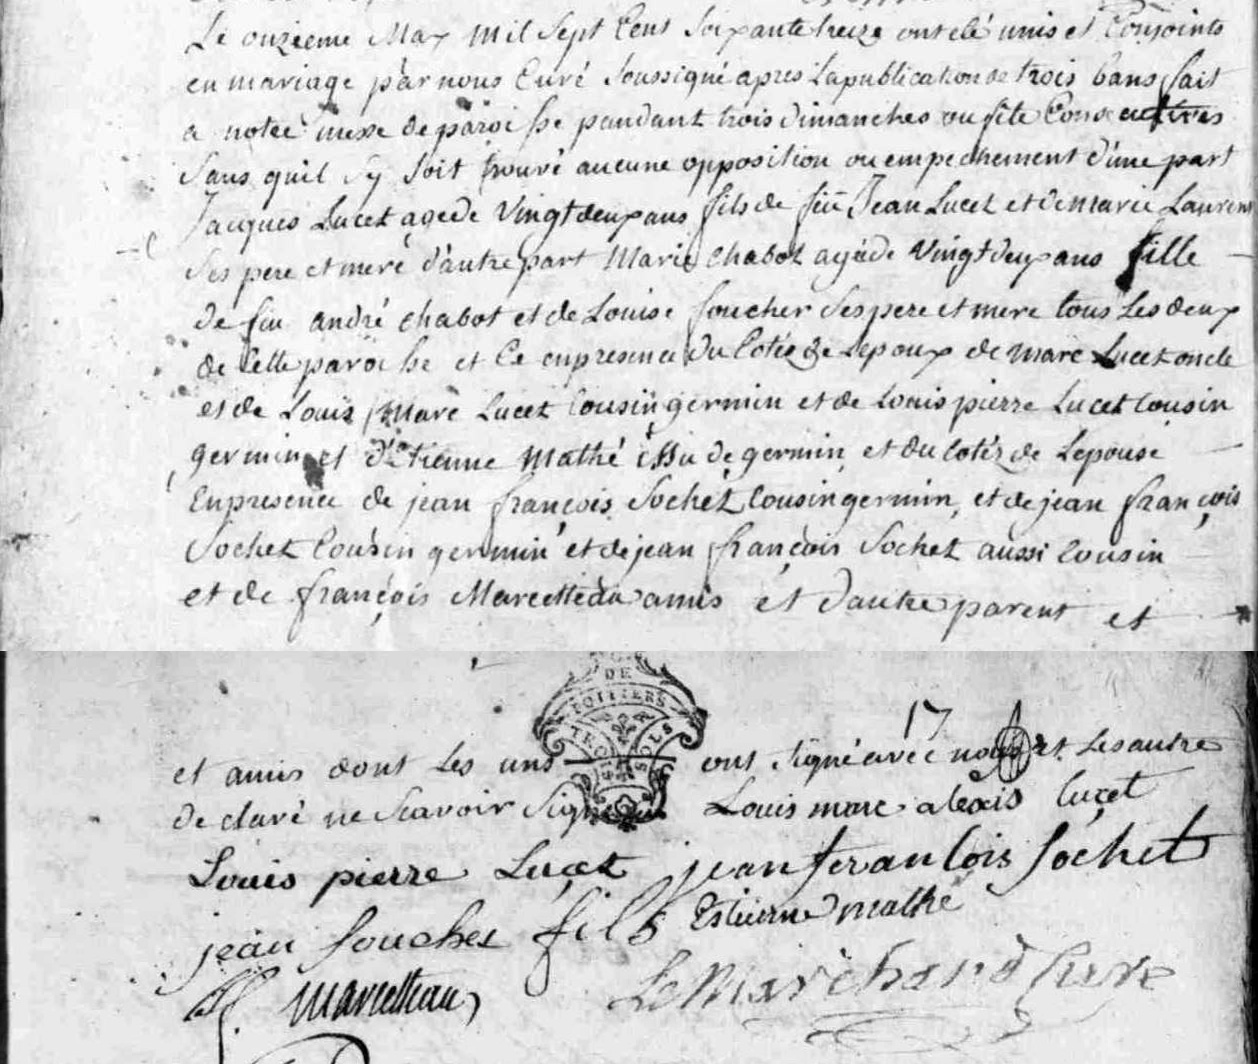 Le onzieme May mil sept Cent soixante treize ont été unis et Conjoints
en mariage par nous Curé soussigné apres la publication de trois bans fait
a notre messe de paroisse pandant trois dimanches ou fête Consecutives
sans quil sy soit trouvé aucune opposition ou empechement d'une part
Jacques Lucet agé de vingt deux ans fils de feu Jean Lucet et de marie Laurens
ses pere et mere d'autre part Marie Chabot agée de vingt deux ans fille
de feu andré chabot et de Louise foucher ses pere et mere tous Les deux
de Cette paroisse et Ce en presence du Cotéz de Lepoux de marc Lucet oncle
et de Louis marc Lucet Cousin germin et de Louis pierre Lucet Cousin
germin et d'Etienne Mathé issu de germin et du Cotéz de Lepouse
En presence de jean françois Sochet Cousin germin, et de jean françois
Sochet Cousin germin et de jean françois Sochet aussi Cousin
et de françois Marcetteau amis et d'autre parent et
DE
POITIERS
TROIS SOLS
17
et amis dont Les uns ont signé avec nous et Les autre
de claré ne scavoir signer Louis marc alexis luçet
Louis pierre Luçet jean feranCois Sochet
jean souchet fils Estienne mathé
Marcetteau LeMarchand Curé